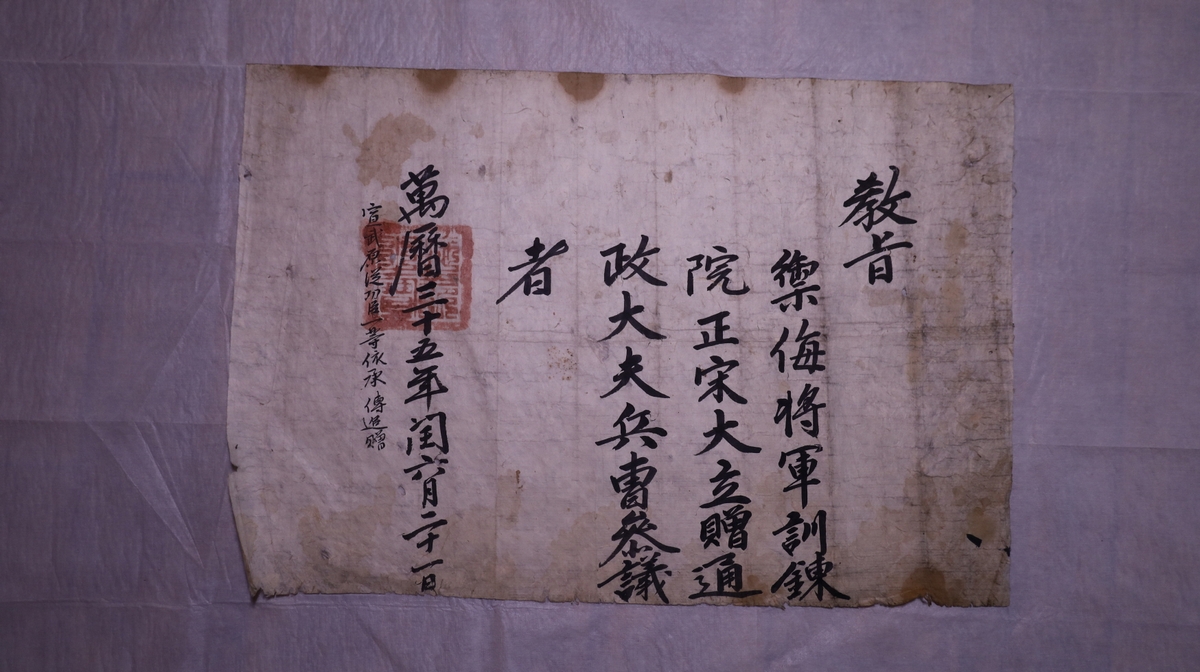 教旨
禦侮將軍訓鍊
院正宋大立贈通
政大夫兵曹參議
者
萬曆三十五年閏六月二十一日
宣武原從功臣一等依承 傳追贈